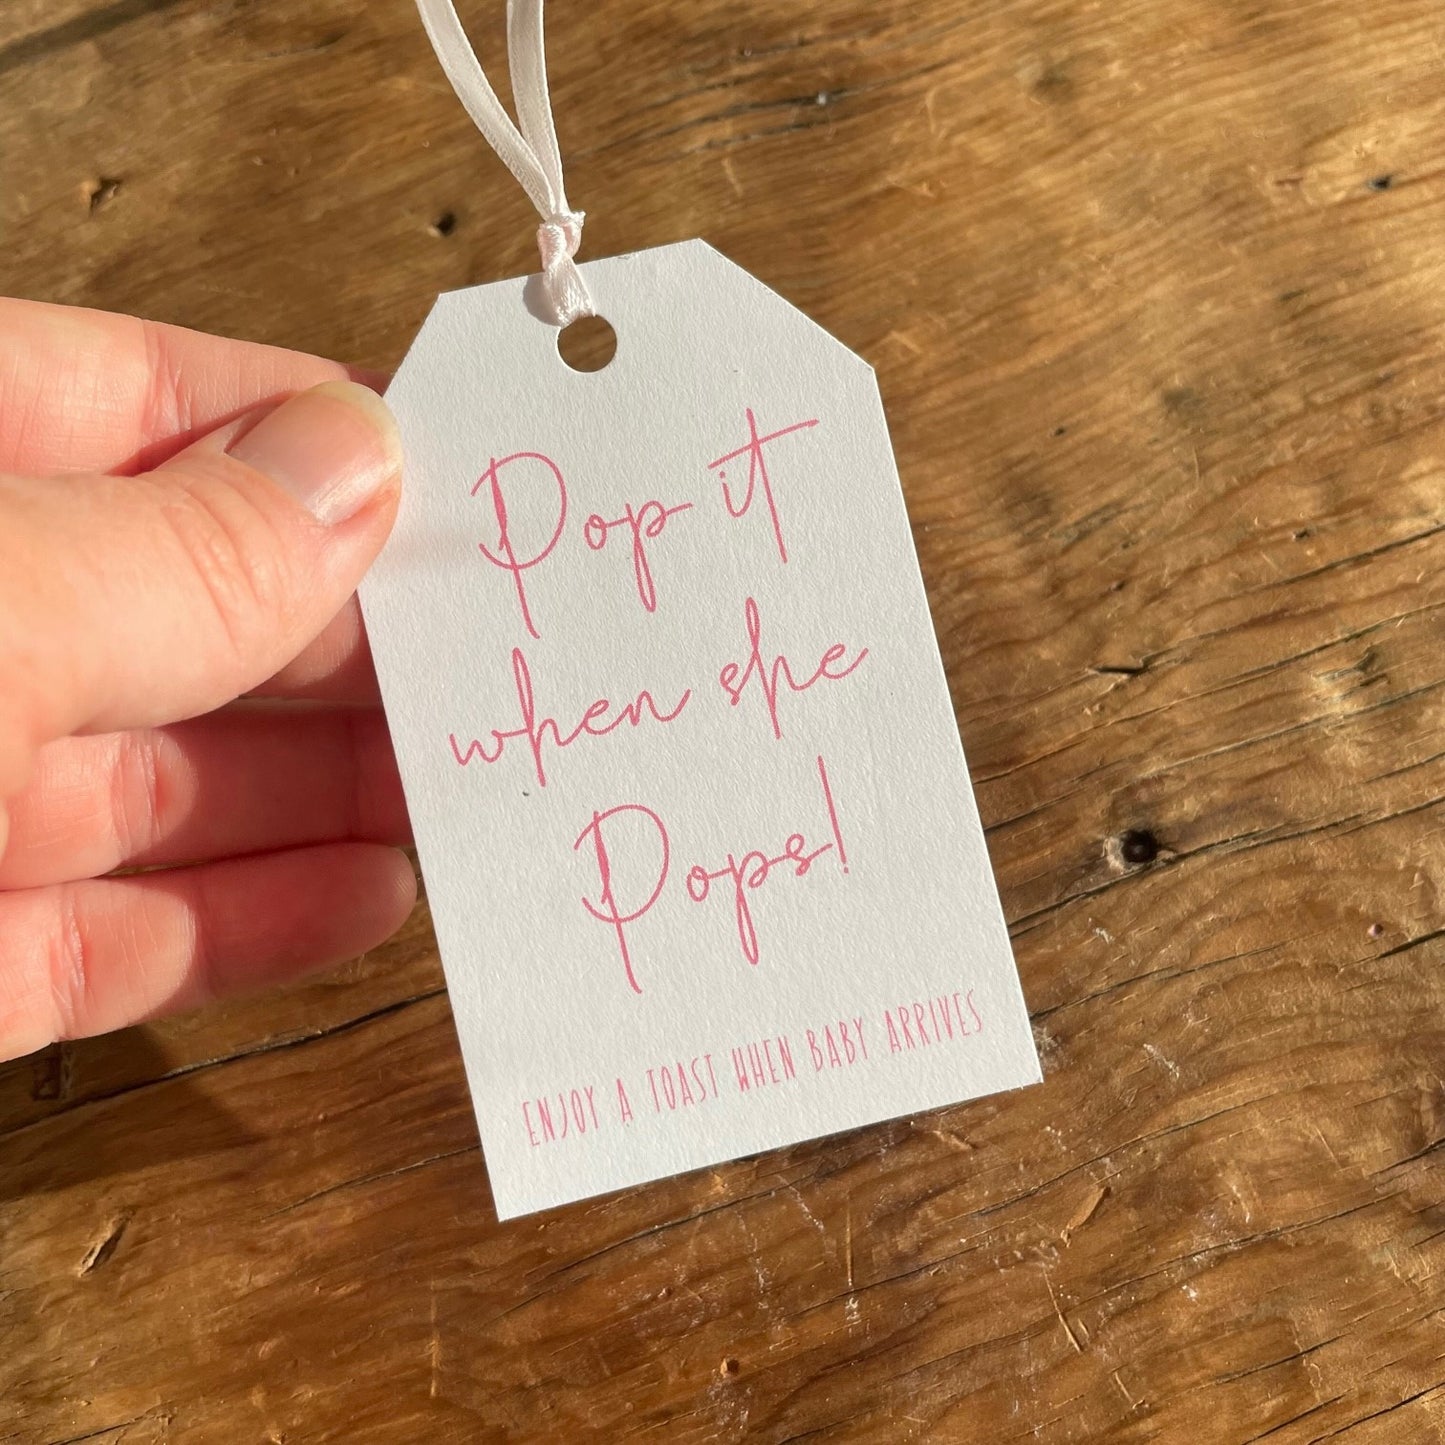 Pop it
when she
Pops!
ENJOY A TOAST WHEN BABY ARRIVES